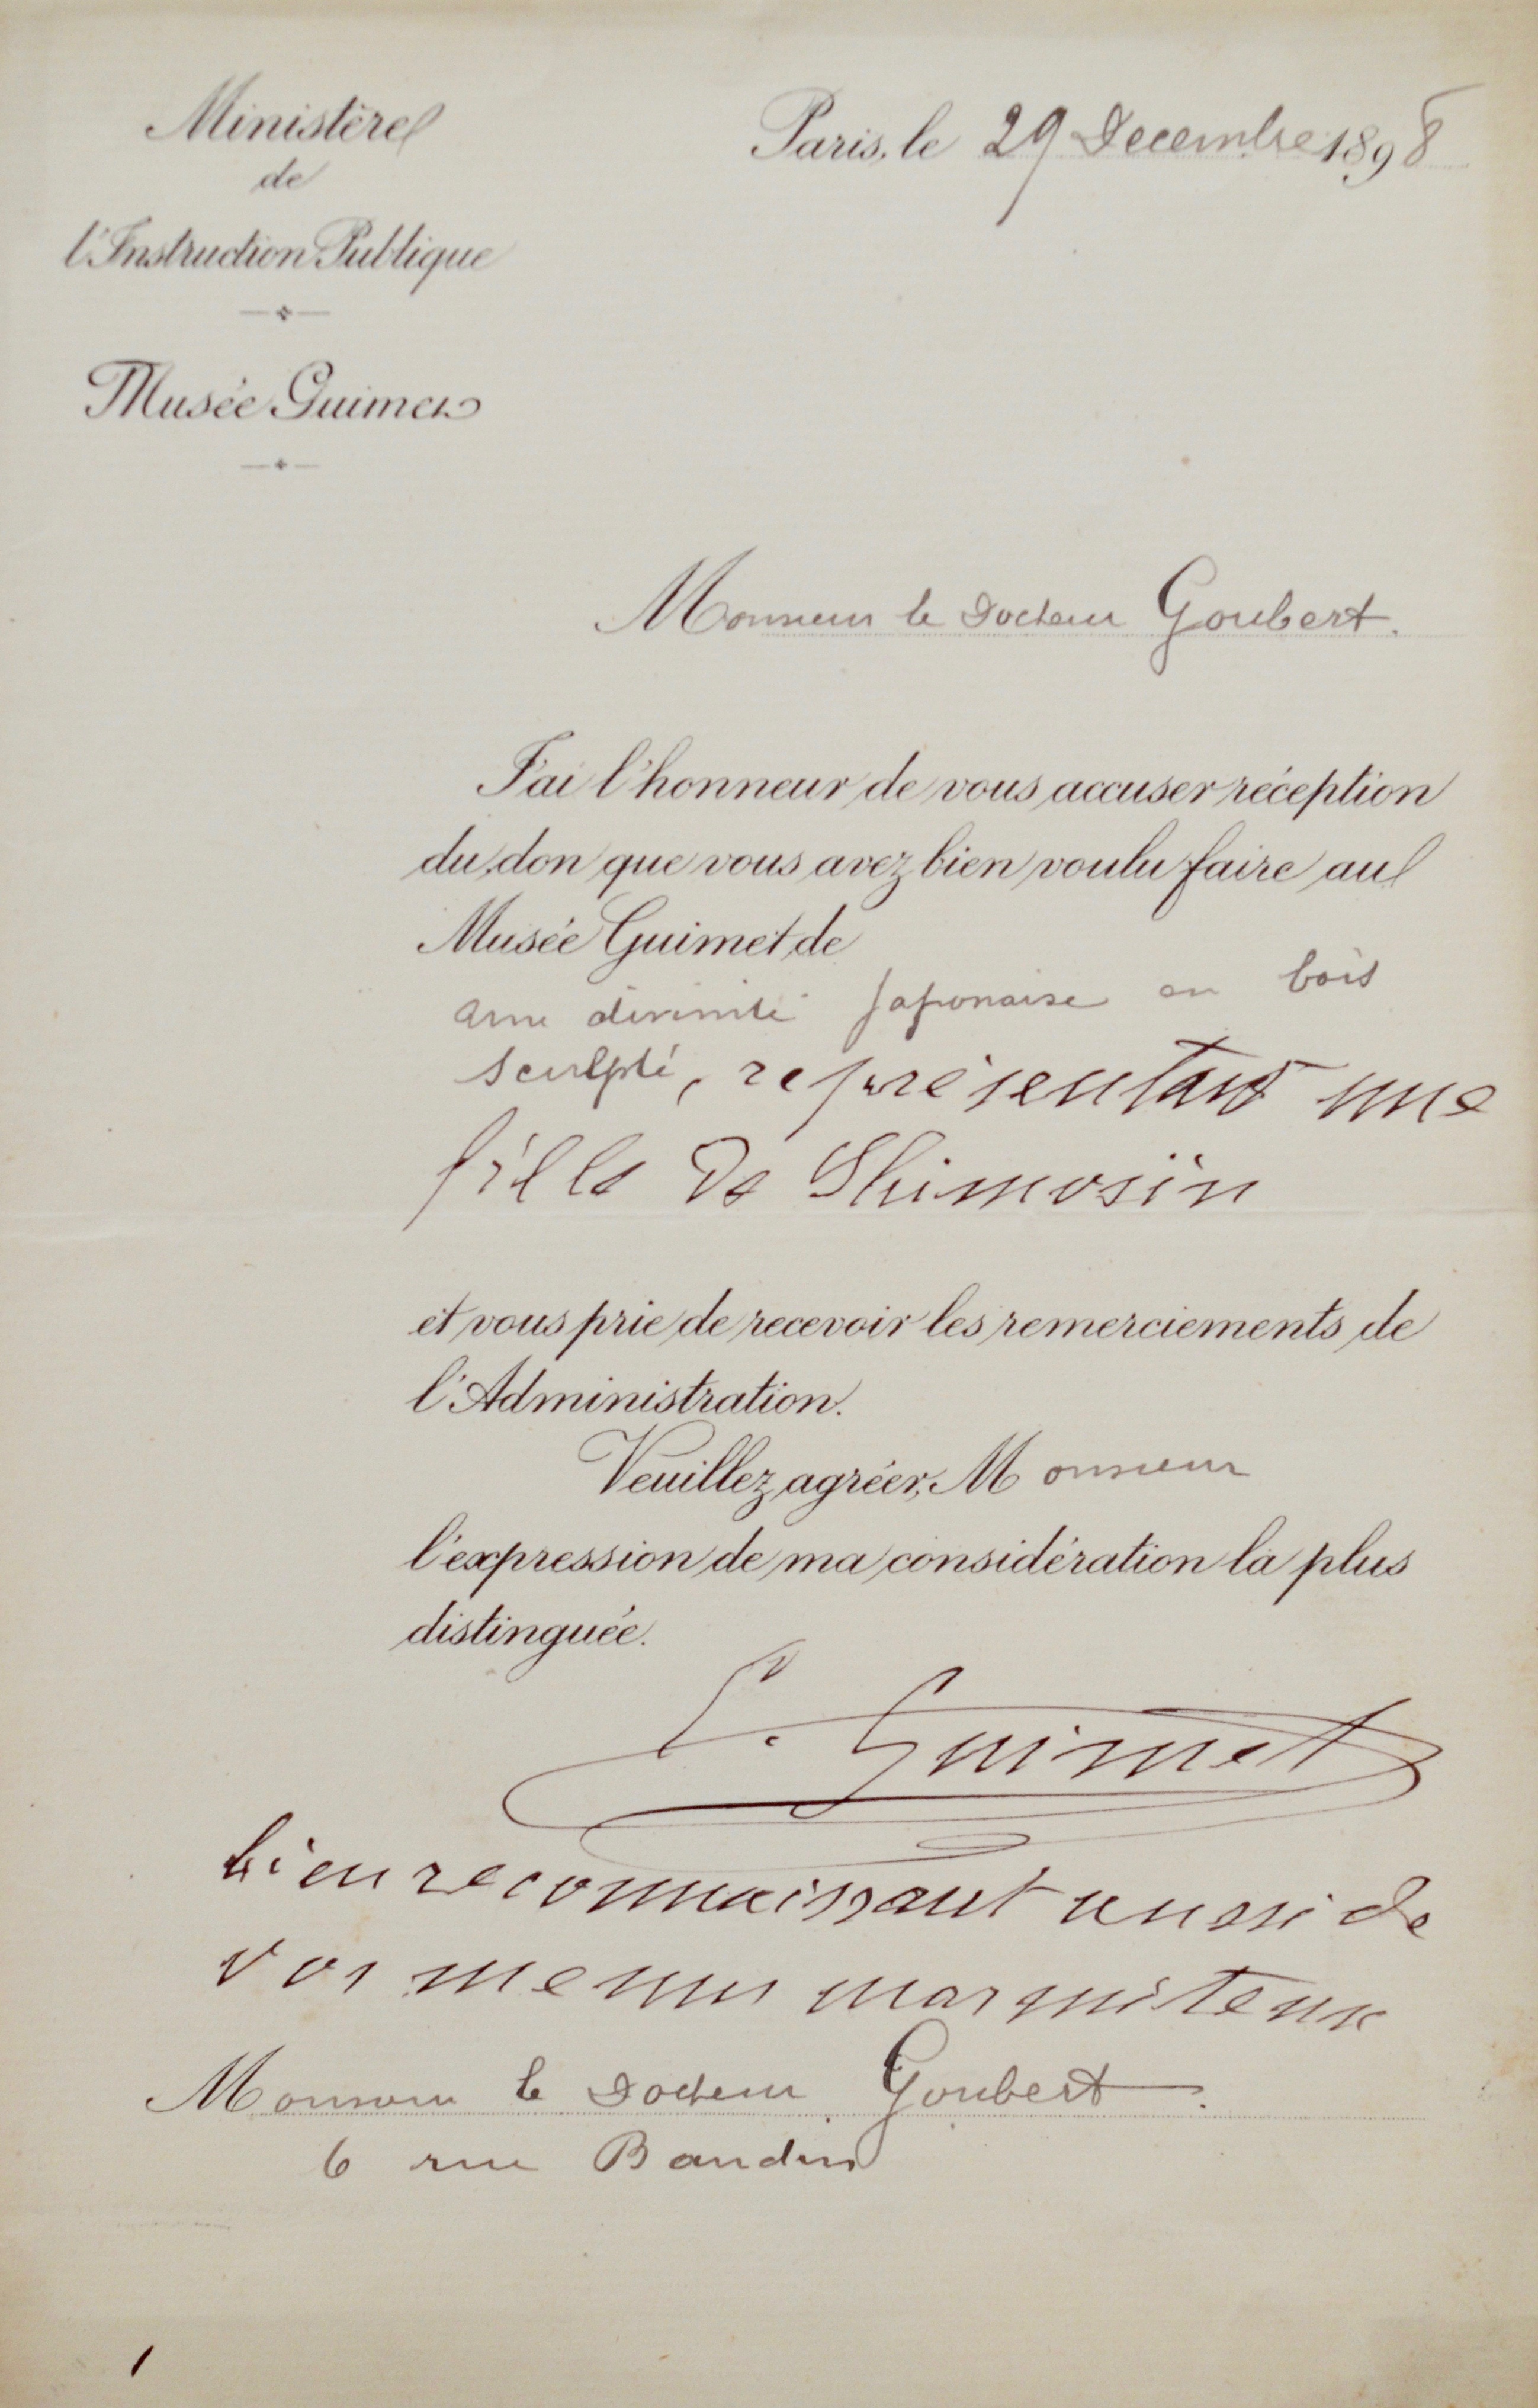 Ministère
de
l'Instruction Publique
Musée Guimet
Paris, le 29 Decembre 1898
Monsieur le Docteur Goubert.
J'ai l'honneur de vous accuser réception
du don que vous avez bien voulu faire au
Musée Guimet, de
une divinité japonaise en bois
sculpté, représentant une
fille de
et vous prie de recevoir les remerciements de
l'Administration.
Veuillez agréer, Monsieur
l'expression de ma considération la plus
distinguée.
E. Guimet
bien reconnaissant aussi de
vos menus
Monsieur le Docteur Goubert.
6 rue Baudin